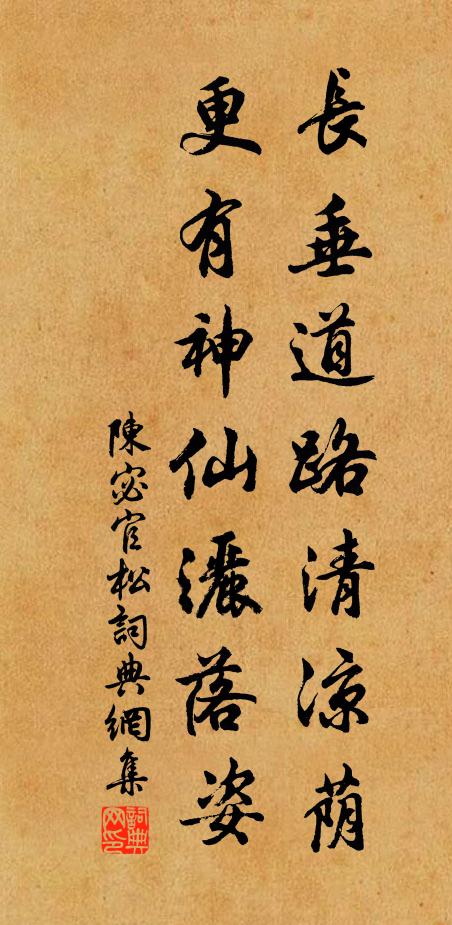 長垂道路清凉荫
更有神仙灑落姿
陳宓官松詞典網集
詞典网印